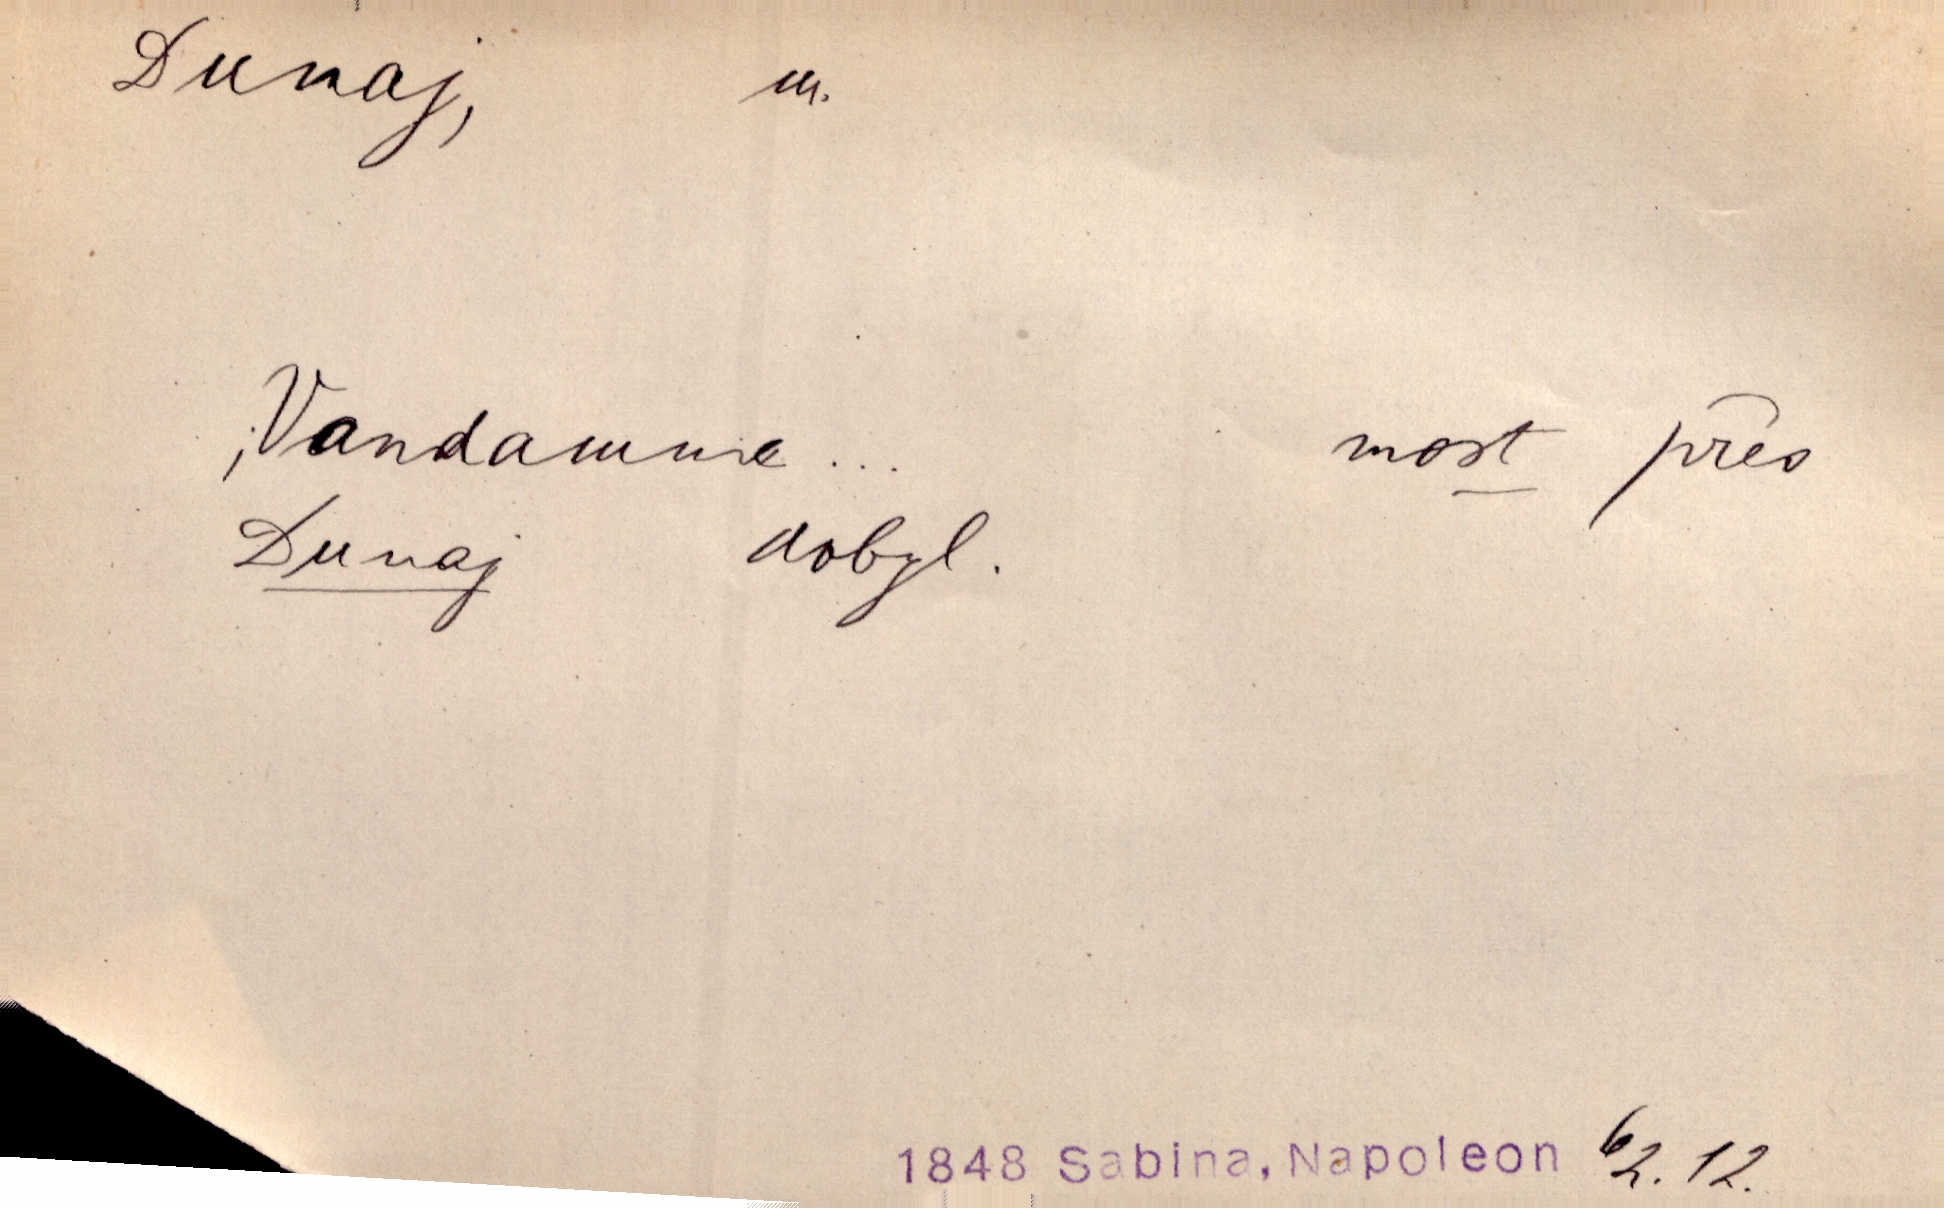 Dunaj, m.
; Vandamme ... most přes
Dunaj dobyl.
1848 Sabina, Napoleon 62. 12.